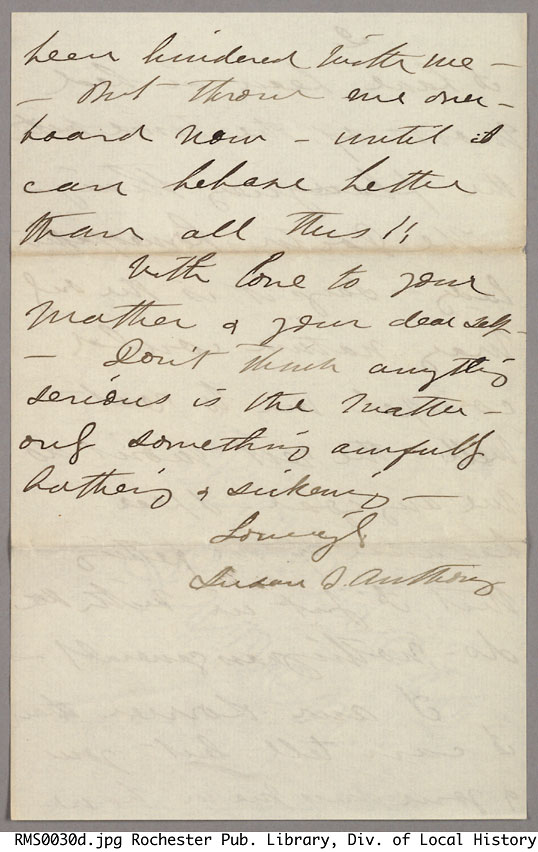 been hindered with me —
— But throw me over-
board now — until it
can behave better
than all this!!
With love to your
Mother & your dear self —
— Don't think anything
serious is the matter —
only something awfully
bothering & sickening —
Lovingly
Susan B. Anthony
RMS0030d.jpg Rochester Pub. Library, Div. of Local History